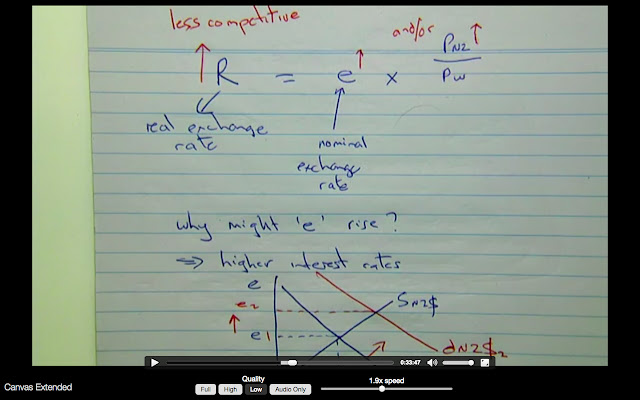 less competitive
and/or
R = e x PNZ
Pw
real exchange
rate
nominal
exchange
rate
why might 'e' rise?
⇒ higher interest rates
e
e2
SNZ$
e1
dNZ$2
0:33:47
Canvas Extended
Quality
Full High Low Audio Only
1.9x speed